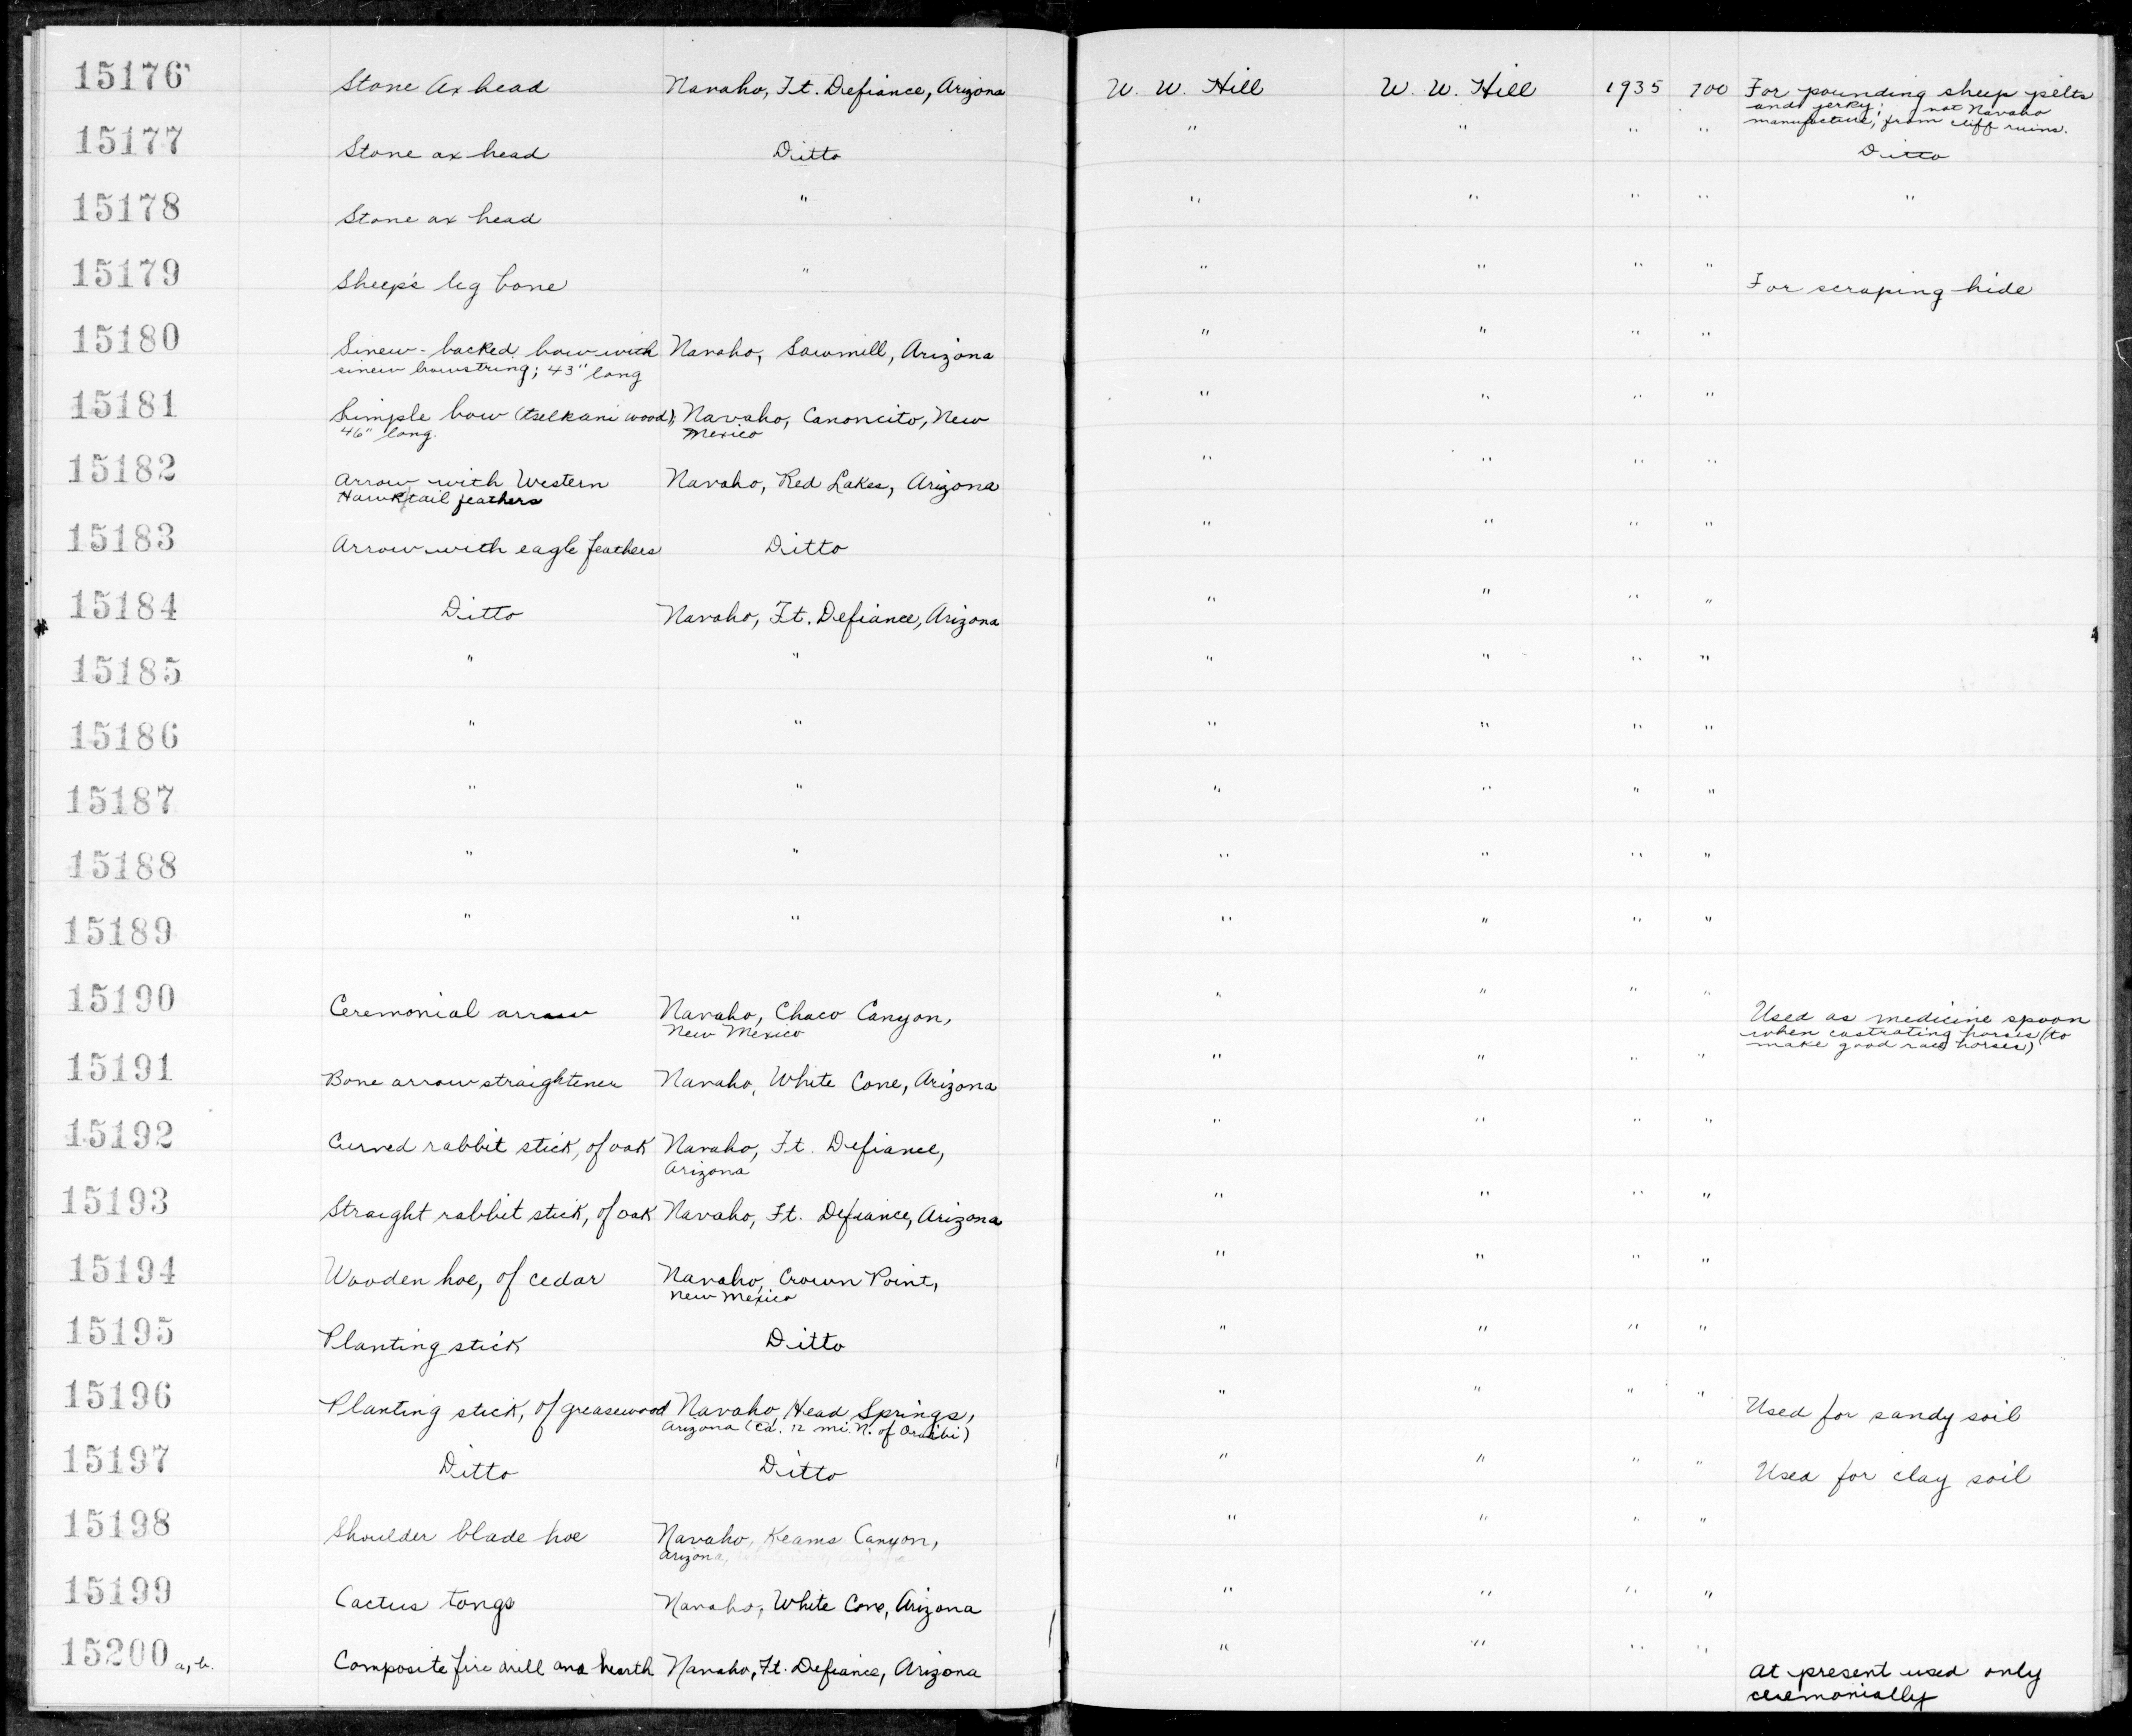 15176 Stone Ax head Navaho, Ft. Defiance, Arizona W. W. Hill W. W. Hill 1935 700 For pounding sheep pelts
and jerky; not Navaho
manufacture, from cliff ruins.
15177 Stone ax head Ditto " " " " Ditto
15178 Stone ax head " " " " " "
15179 Sheep's leg bone " " " " " For scraping hide
15180 Sinew-backed bow with Navaho, Sawmill, Arizona " " " "
sinew bowstring; 43" long
15181 Simple bow (tselkani wood); Navaho, Canoncito, New " " " "
46" long. Mexico
15182 Arrow with Western Navaho, Red Lakes, Arizona " " " "
Hawk tail feathers
15183 Arrow with eagle feathers Ditto " " " "
15184 Ditto Navaho, Ft. Defiance, Arizona " " " "
15185 " " " " " "
15186 " " " " " "
15187 " " " " " "
15188 " " " " " "
15189 " " " " " "
15190 Ceremonial arrow Navaho, Chaco Canyon, " " " " Used as medicine spoon
New Mexico when castrating horses (to
make good race horses)
15191 Bone arrow straightener Navaho, White Cone, Arizona " " " "
15192 Curved rabbit stick, of oak Navaho, Ft. Defiance, " " " "
Arizona
15193 Straight rabbit stick, of oak Navaho, Ft. Defiance, Arizona " " " "
15194 Wooden hoe, of cedar Navaho, Crown Point, " " " "
New Mexico
15195 Planting stick Ditto " " " "
15196 Planting stick, of greasewood Navaho, Head Springs, " " " " Used for sandy soil
Arizona (ca. 12 mi. N. of Oraibi)
15197 Ditto Ditto " " " " Used for clay soil
15198 Shoulder blade hoe Navaho, Keams Canyon, " " " "
Arizona,
15199 Cactus tongs Navaho, White Cone, Arizona " " " "
15200 a, b. Composite fire drill and hearth Navaho, Ft. Defiance, Arizona " " " " At present used only
ceremonially